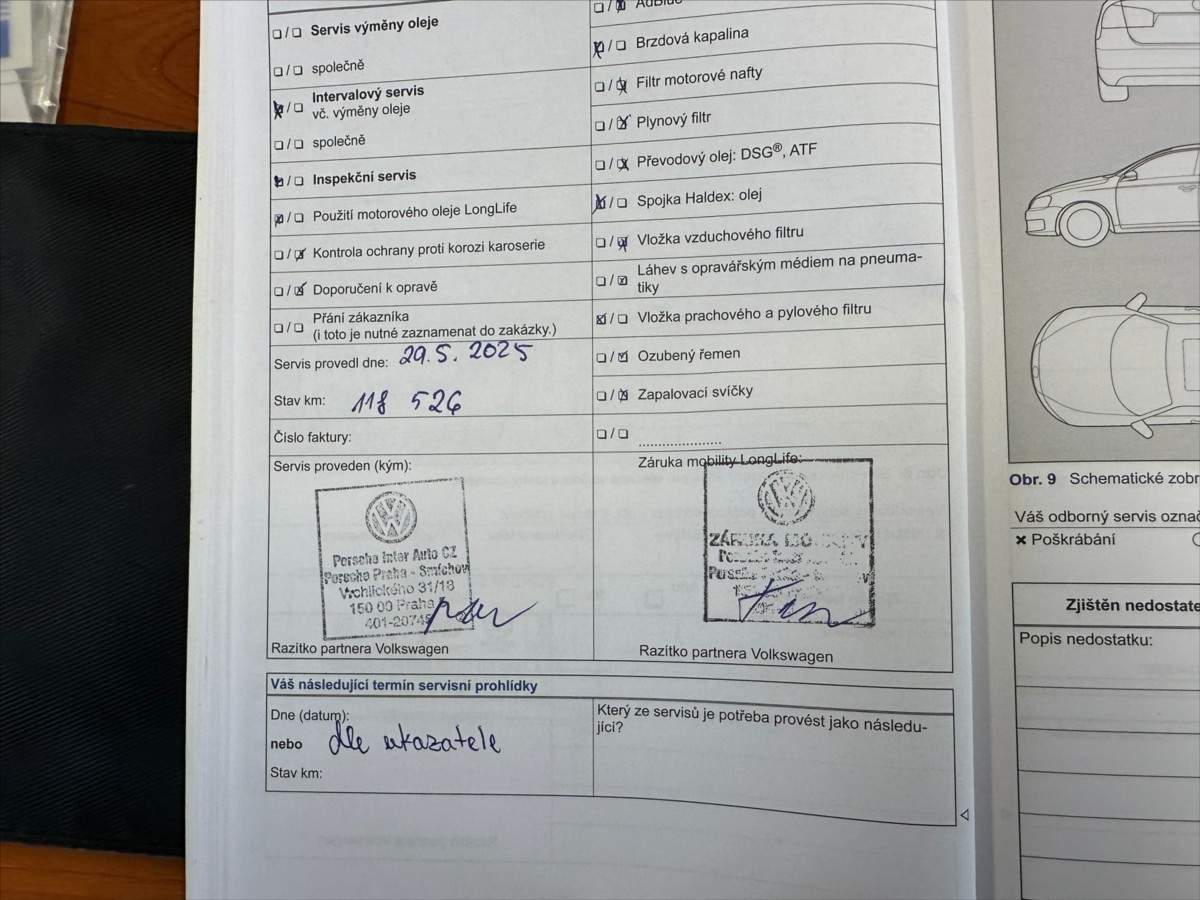 Servis výměny oleje
společně
Intervalový servis
vč. výměny oleje
společně
Inspekční servis
Použití motorového oleje LongLife
Kontrola ochrany proti korozi karoserie
Doporučení k opravě
Přání zákazníka
(i toto je nutné zaznamenat do zakázky.)
Servis provedl dne: 29.5. 2025
Stav km: 118 526
Číslo faktury:
Servis proveden (kým):
Porsche Inter Auto CZ
Porsche Praha - Smíchov
Vrchlického 31/18
150 00 Praha
Razítko partnera Volkswagen
AdBlue
Brzdová kapalina
Filtr motorové nafty
Plynový filtr
Převodový olej: DSG®, ATF
Spojka Haldex: olej
Vložka vzduchového filtru
Láhev s opravářským médiem na pneuma-
tiky
Vložka prachového a pylového filtru
Ozubený řemen
Zapalovací svíčky
Záruka mobility LongLife:
Razítko partnera Volkswagen
Váš následující termín servisní prohlídky
Dne (datum):
nebo dle ukazatele
Stav km:
Který ze servisů je potřeba provést jako následu-
jící?
Obr. 9 Schematické zobr
Váš odborný servis označ
× Poškrábání
Zjištěn nedostate
Popis nedostatku: